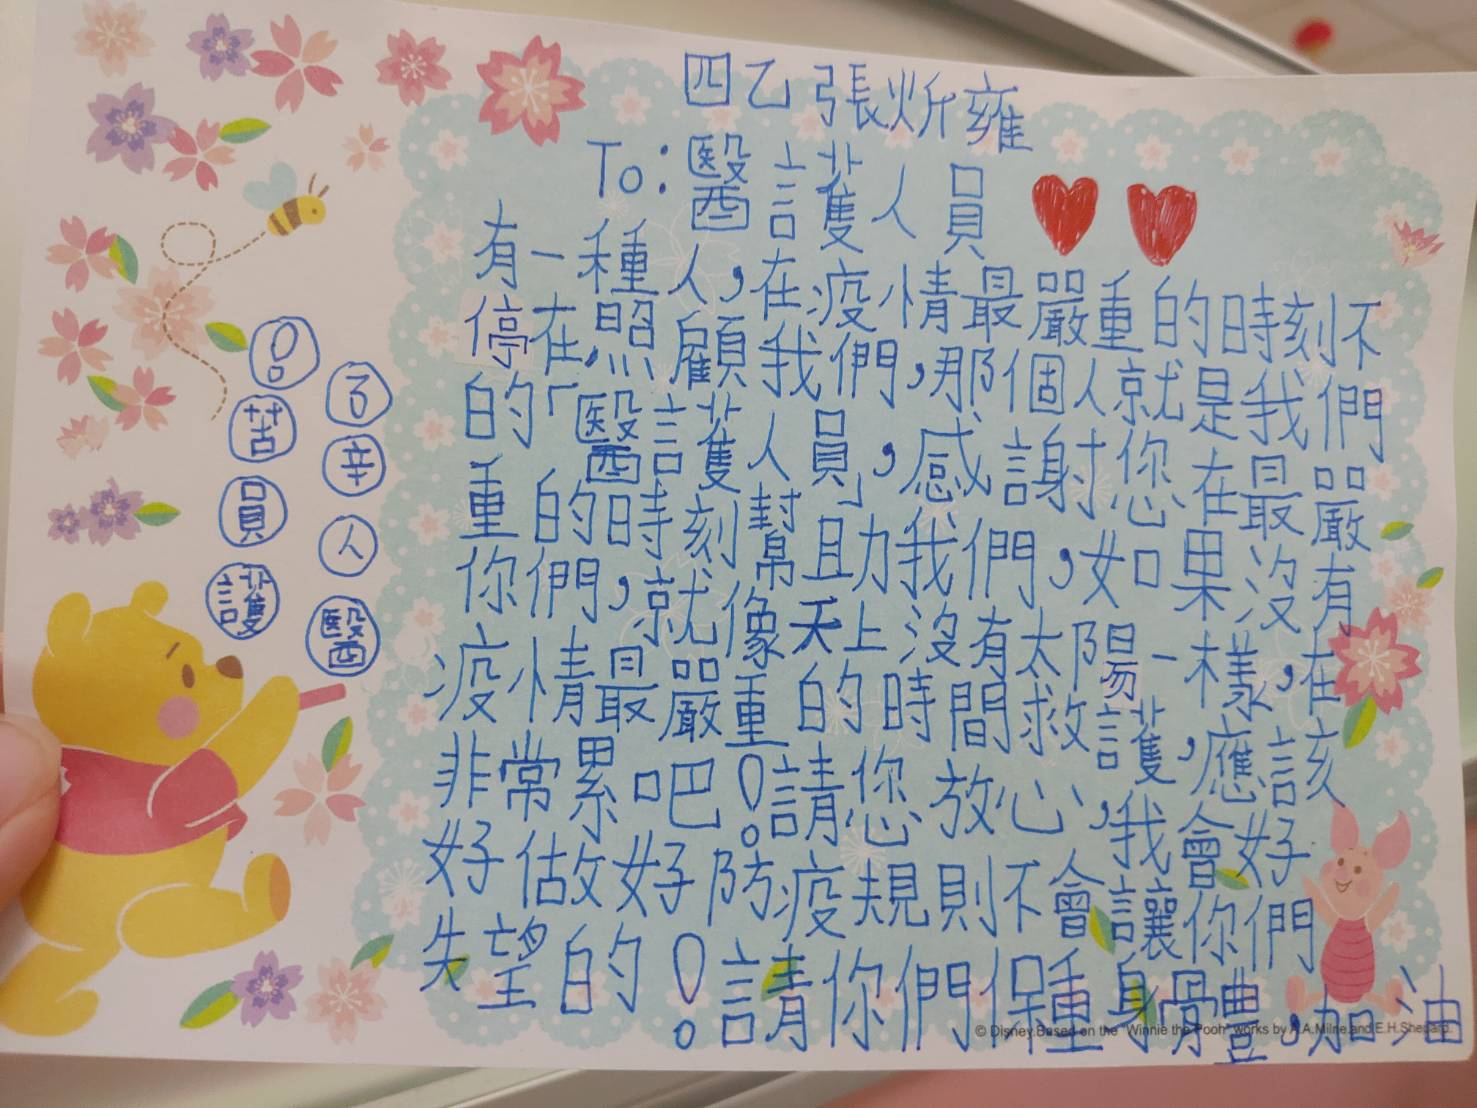 四乙 張炘雍
To:醫護人員
有一種人,在疫情最嚴重的時刻不
停在照顧我們,那個人就是我們
的「醫護人員」,感謝您在最嚴
重的時刻幫助我們,如果沒有
你們,就像天上沒有太陽一樣,在
疫情最嚴重的時間救護,應該
非常累吧!請您放心,我會好
好做好防疫規則不會讓你們
失望的!請你們保重身體,加油
醫護人員辛苦了!
© Disney.Based on the "Winnie the Pooh" works by A.A.Milne and E.H.Shepard.